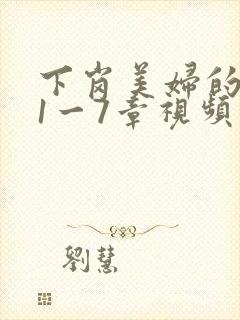 下岗美婦的
1一7章視頻
劉慧